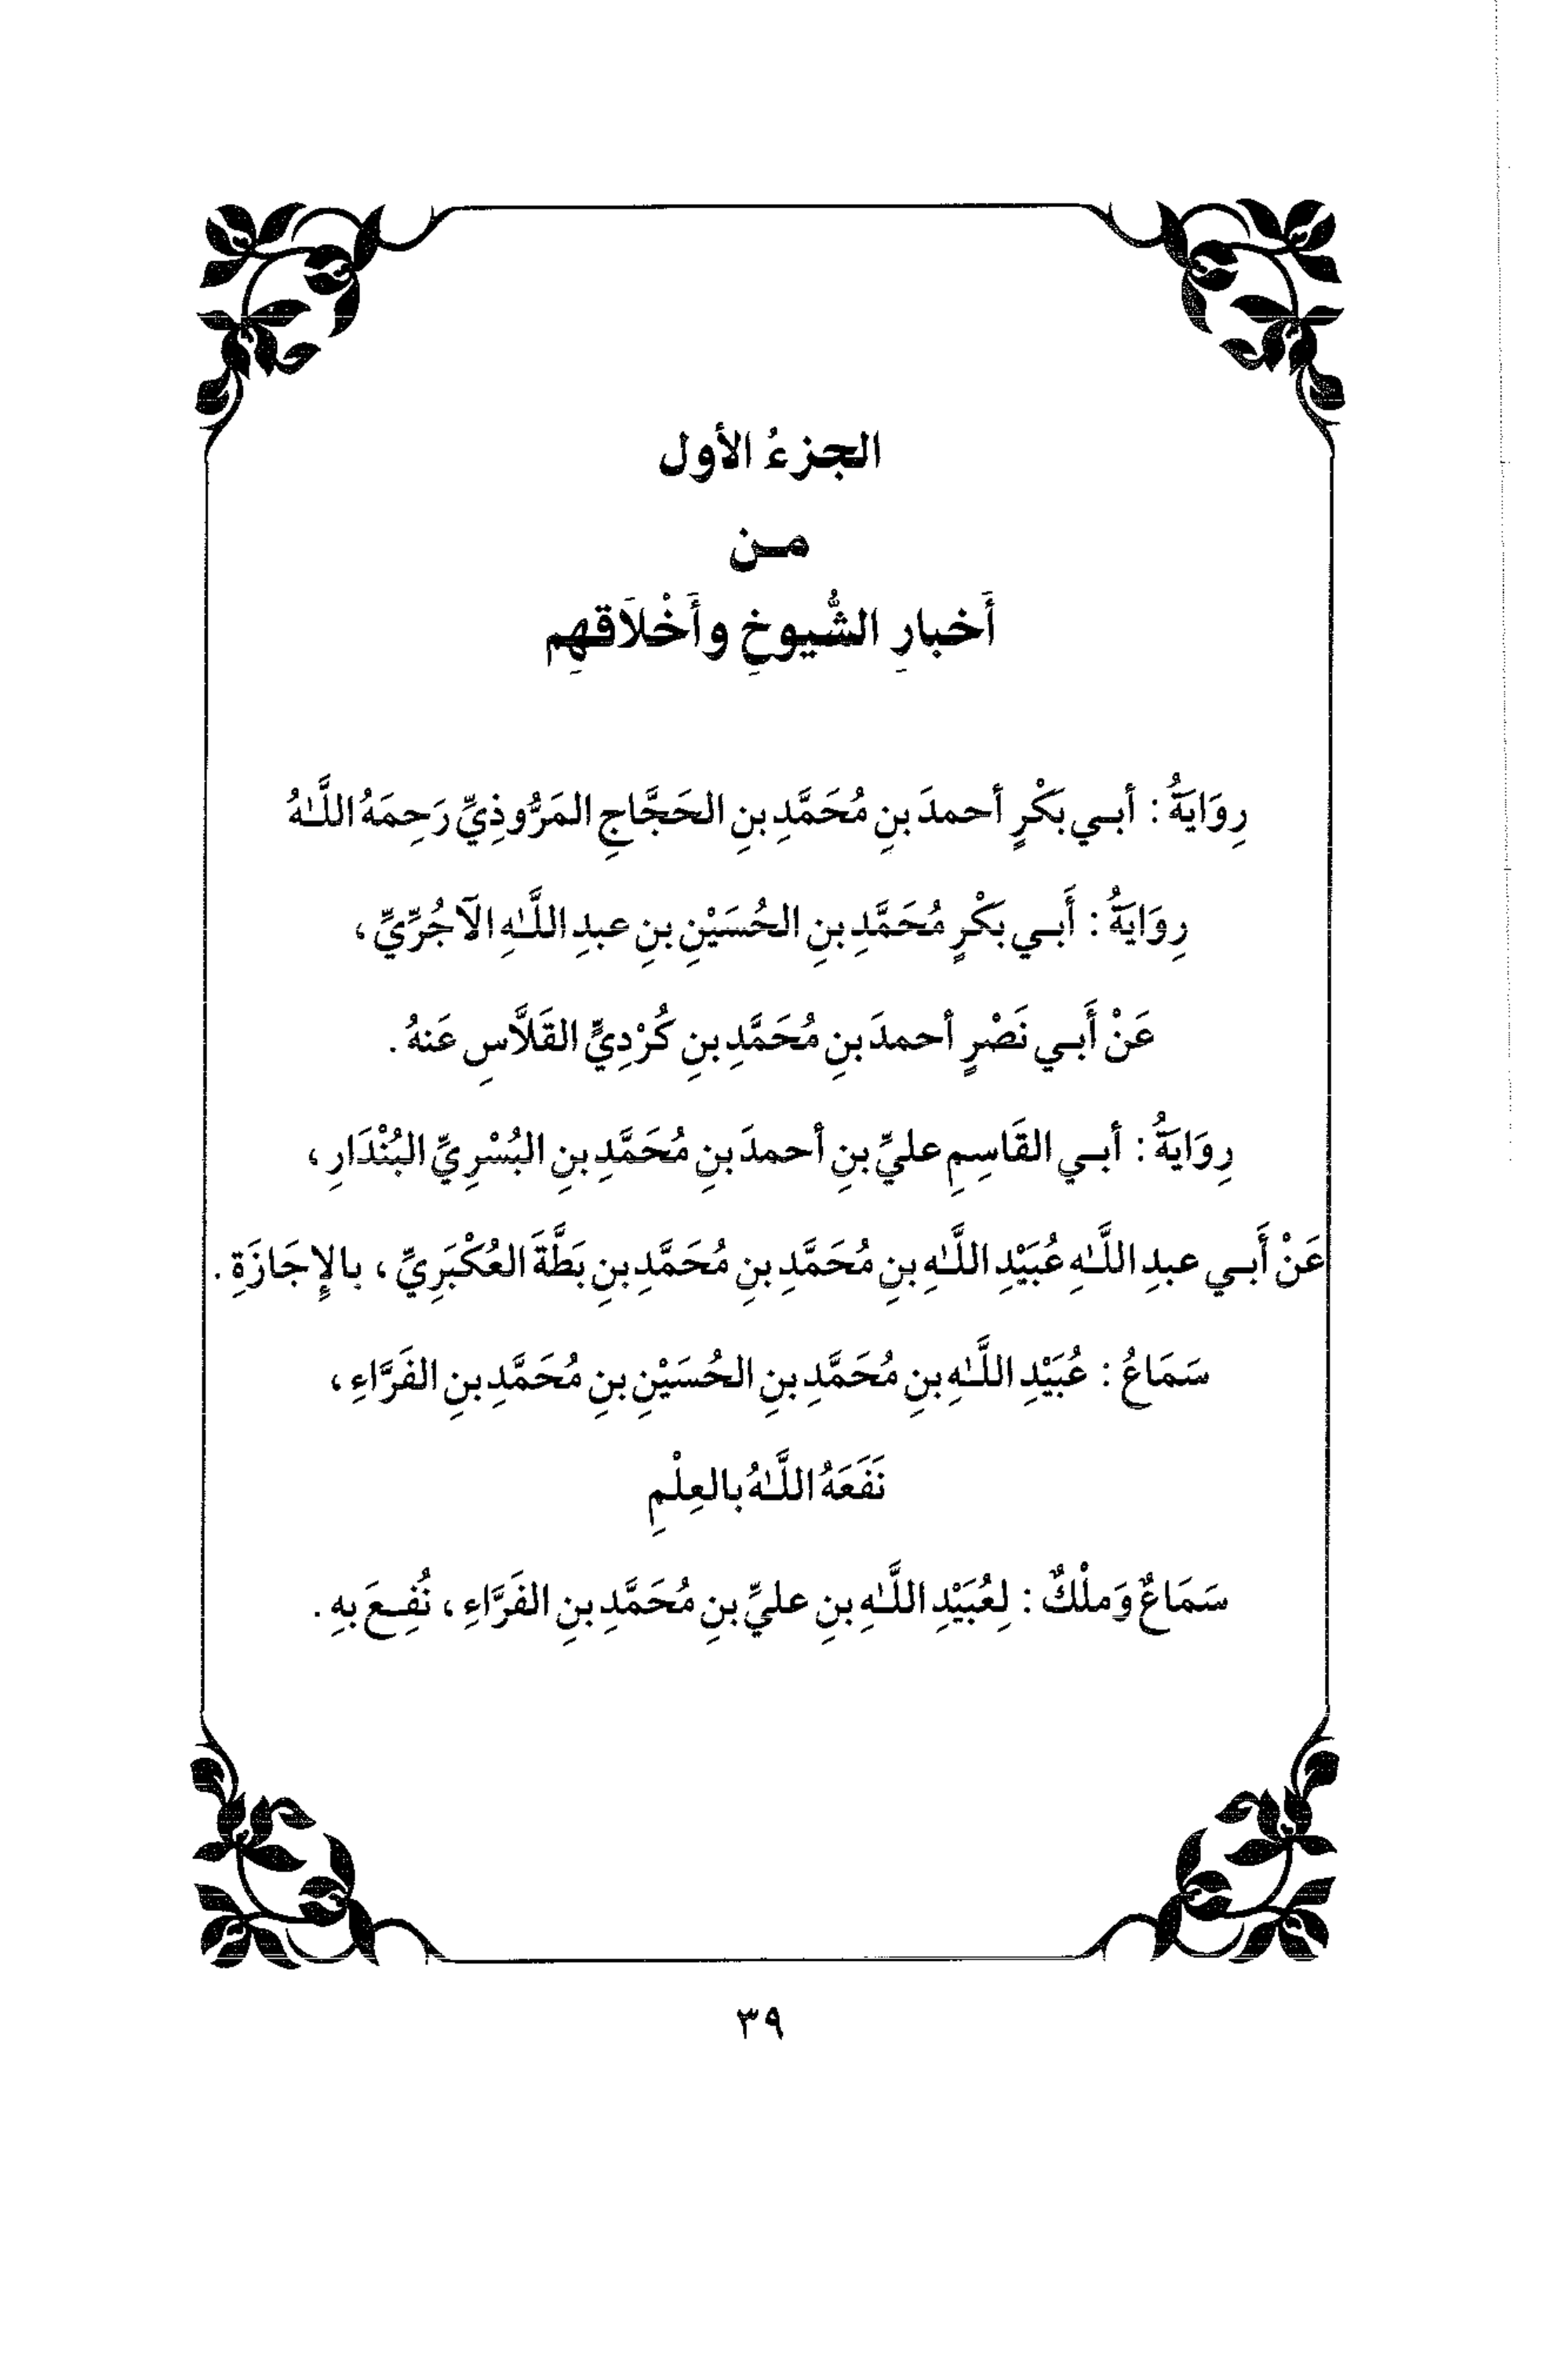 الجزءُ الأول
مـن
أَخبارِ الشُّيوخِ وأَخْلَاقهِم
رِوَايَةُ : أبـي بَكْرٍ أحمدَ بنِ مُحَمَّدِ بنِ الحَجَّاجِ المَرُّوذِيِّ رَحِمَهُ اللَّـهُ
رِوَايَةُ : أَبـي بَكْرٍ مُحَمَّدِ بنِ الحُسَيْنِ بنِ عبدِ اللَّـهِ الآجُرِّيِّ ،
عَنْ أَبـي نَصْرٍ أحمدَ بنِ مُحَمَّدِ بنِ كُرْدِيٍّ القَلَّاسِ عَنهُ .
رِوَايَةُ : أبـي القَاسِمِ عليِّ بنِ أحمدَ بنِ مُحَمَّدِ بنِ البُسْرِيِّ البُنْدَارِ ،
عَنْ أَبـي عبدِ اللَّـهِ عُبَيْدِ اللَّـهِ بنِ مُحَمَّدِ بنِ مُحَمَّدِ بنِ بَطَّةَ العُكْبَرِيِّ ، بالإِجَازَةِ .
سَمَاعُ : عُبَيْدِ اللَّـهِ بنِ مُحَمَّدِ بنِ الحُسَيْنِ بنِ مُحَمَّدِ بنِ الفَرَّاءِ ،
نَفَعَهُ اللَّـهُ بالعِلْمِ
سَمَاعٌ وَملْكٌ : لِعُبَيْدِ اللَّـهِ بنِ عليِّ بنِ مُحَمَّدِ بنِ الفَرَّاءِ ، نُفِـعَ بهِ .
٣٩